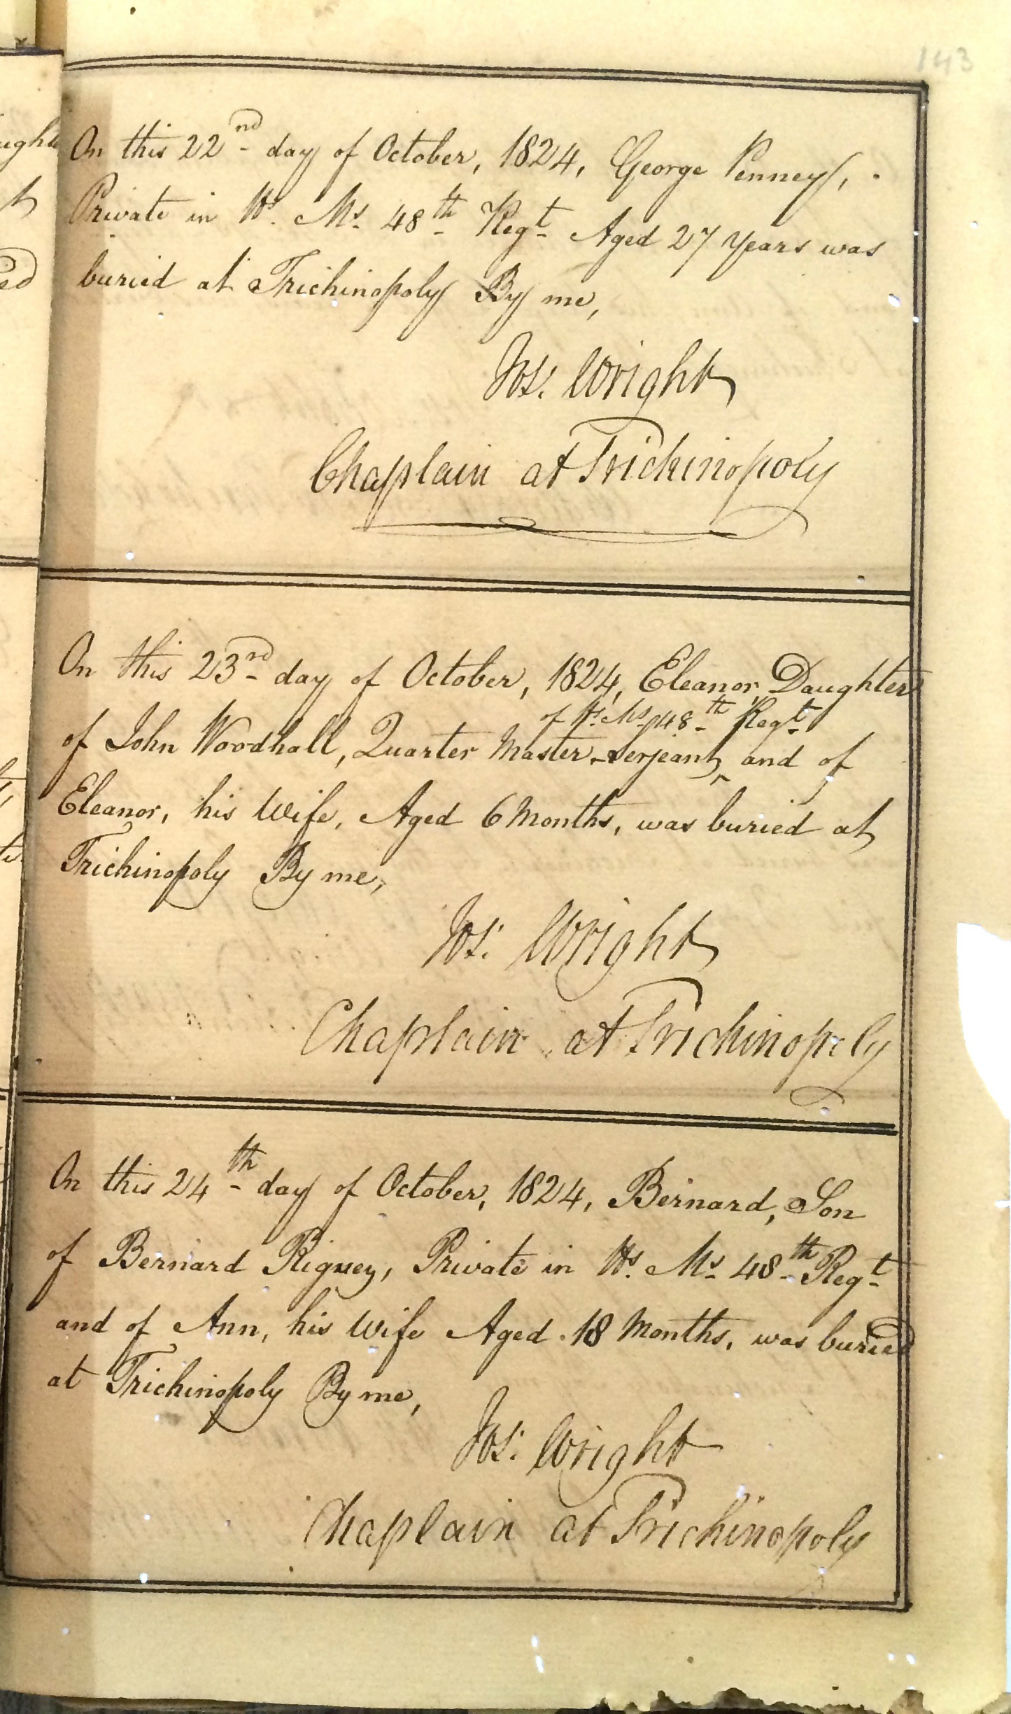 143
On this 22nd day of October, 1824, George Penney,
Private in H. Ms. 48th Regt. Aged 27 Years was
buried at Trichinopoly By me,
Jos. Wright
Chaplain at Trichinopoly
On this 23rd day of October, 1824, Eleanor, Daughter
of H. Ms. 48th Regt.
of John Woodhall, Quarter Master-Serjeant, and of
Eleanor, his Wife, Aged 6 Months, was buried at
Trichinopoly By me,
Jos. Wright
Chaplain at Trichinopoly
On this 24th day of October, 1824, Bernard, Son
of Bernard Rigney, Private in H. Ms. 48th Regt.
and of Ann, his Wife Aged 18 Months, was buried
at Trichinopoly By me,
Jos. Wright
Chaplain at Trichinopoly